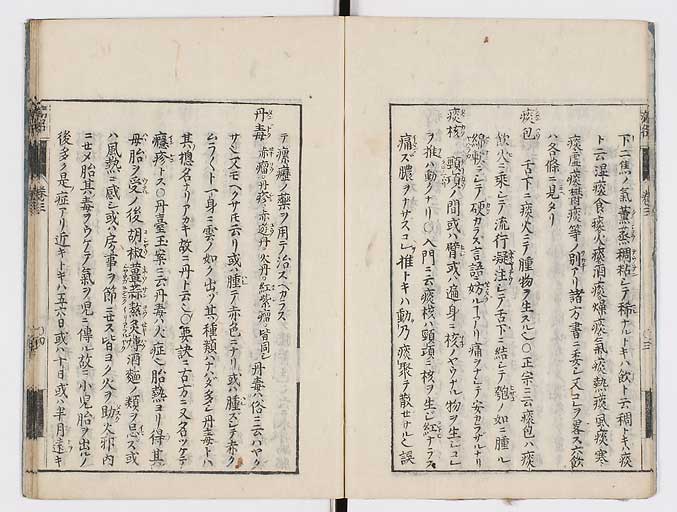 下二焦ノ氣薫蒸稠粘シテ稀ナルトキハ飲ト云稠トキハ痰
ト云湿痰食痰火痰酒痰燥痰氣痰熱痰風痰寒
痰虚痰欝痰等ノ別アリ諸方書ニ委シ又コヽニ畧ス六飲
ハ各條ニ見タリ
痰包 舌下ニ痰火ニテ腫物ヲ生スル也○正宗ニ云痰包ハ痰
飲火ニ乗シテ流行凝注シテ舌下ニ結シテ匏ノ如ニ腫ル
綿軟ニシテ硬カラス言語ニ妨ルヿアリ痛ヲナシテ安カラサルナリ
痰核 頸項ノ間或ハ臂或ハ遍身ニ核ノヤウナル物ヲ生シコレ
ヲ推ハ動クナリ○入門ニ云痰核ハ頸項ニ核ヲ生シ紅ナラス
痛ズ膿ヲナサスコレヲ推トキハ動乃痰聚テ散セサル也誤
テ瘰癧ノ藥ヲ用テ治スヘカラス
丹毒 赤瘤 丹疹 赤遊丹 火丹 紅紫瘤 皆同シ 丹毒ハ俗ニ云ハヤク
サ也又モヘクサ𪜈云リ或ハ腫テ赤色ニナリ或ハ腫ズシテ赤ク
ムラ〱ト一身ニ雲ノ如ク出ツ其種類ハナハダ多シ丹毒トハ
其揔名ナリアカキ故ニ丹ト云也○要訣ニ古方ニ又名ツケテ
癮疹トス○丹臺玉案ニ云丹毒ハ火症也胎熱ヨリ得其
母胎ヲ受ノ後胡椒薑蒜熬炙煿酒麵ノ類ヲ忌ズ或
ハ風熱ニ感シ或ハ房事ヲ節ニセズ皆ヨク火ヲ助火邪内
ニセメ胎其毒ヲウケテ氣ヲ児ニ傳ル故ニ小児胎ヲ出ルノ
後多ク是症アリ近キトキハ五六日或ハ十日或ハ半月遠キ